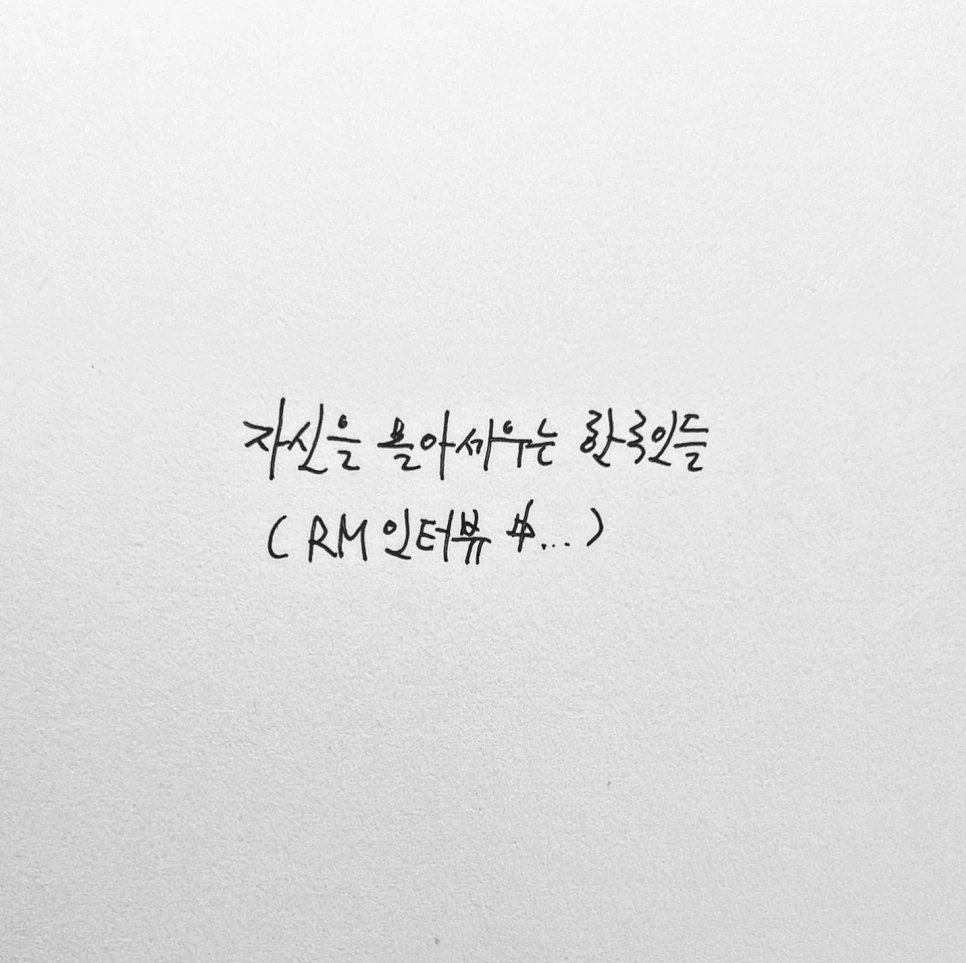 자신을 몰아세우는 한국인들
(RM 인터뷰 中...)